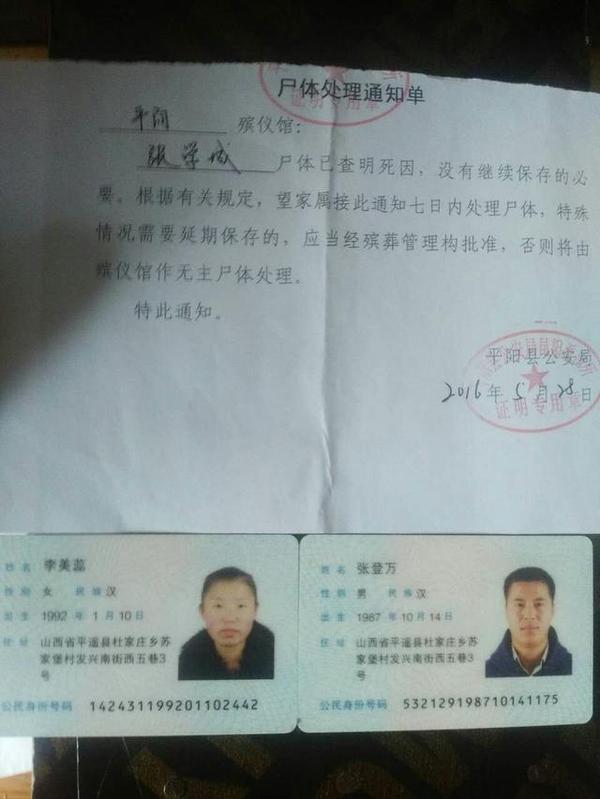 尸体处理通知单
证明专用章
平阳 殡仪馆:
张学城 尸体已查明死因，没有继续保存的必
要。根据有关规定，望家属接此通知七日内处理尸体，特殊
情况需要延期保存的，应当经殡葬管理构批准，否则将由
殡仪馆作无主尸体处理。
特此通知。
平阳县公安局
2016年5月28日
证明专用章
姓名 李美蕊
性别 女 民族 汉
出生 1992年1月10日
住址 山西省平遥县杜家庄乡苏
家堡村发兴南街西五巷3
号
公民身份号码 142431199201102442
姓名 张登万
性别 男 民族 汉
出生 1987年10月14日
住址 山西省平遥县杜家庄乡苏
家堡村发兴南街西五巷3
号
公民身份号码 532129198710141175